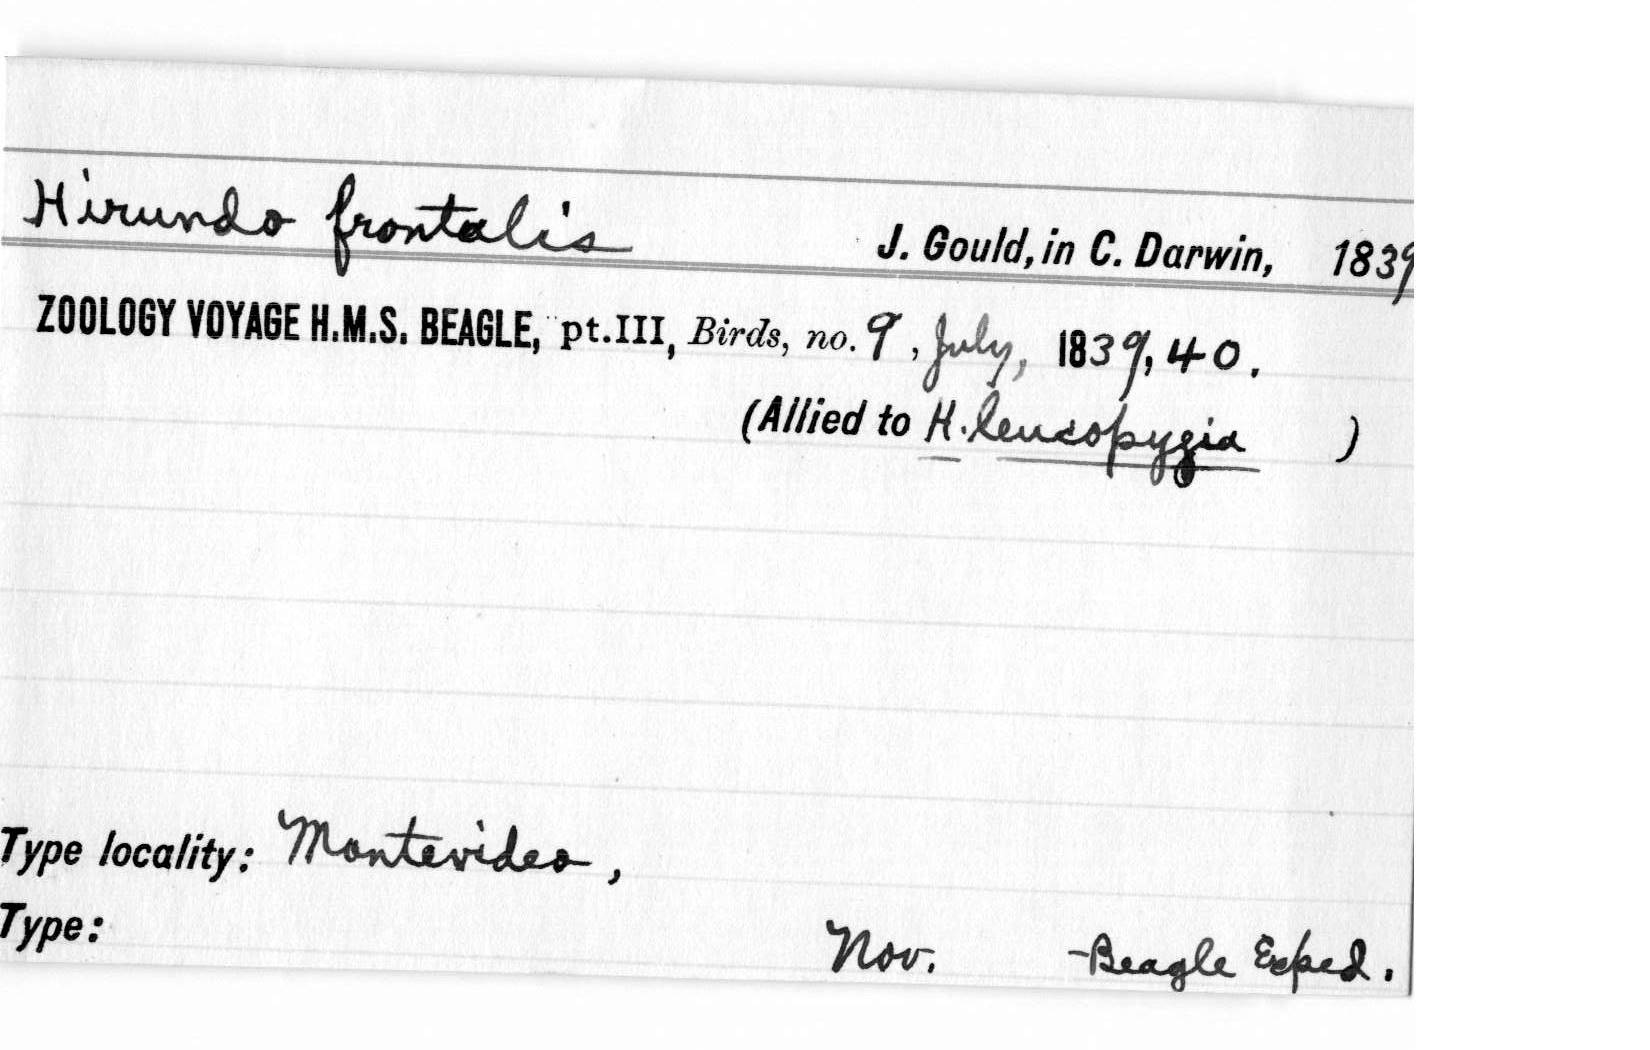 Hirundo frontalis J. Gould, in C. Darwin, 1839
ZOOLOGY VOYAGE H.M.S. BEAGLE, pt.III, Birds, no. 9, July, 1839, 40.
(Allied to H. leucopygia )
Type locality: Montevideo,
Type: Nov. -Beagle Exped.